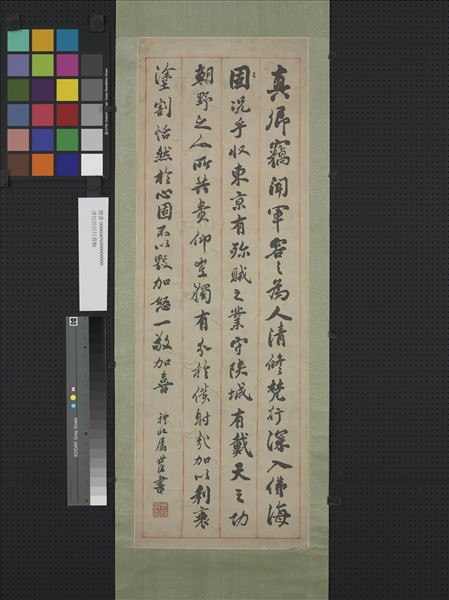 真卿竊聞軍容之為人清修梵行深入佛海
固況乎收東京有殄賊之業守陝城有戴天之功
朝野之人所共貴仰豈獨有分於僕射哉加以利衰
塗割恬然於心固不以毀加怒一敬加喜
屬 書
KODAK Gray Scale